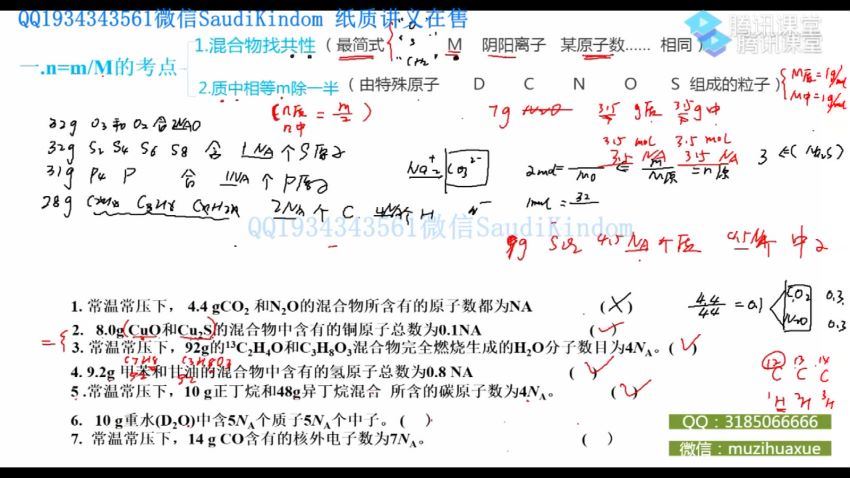 QQ1934343561微信SaudiKindom 纸质讲义在售
腾讯课堂
腾讯课堂
1.混合物找共性（最简式 M 阴阳离子 某原子数...... 相同）
一.n=m/M的考点
2.质中相等m除一半（由特殊原子 D C N O S 组成的粒子）
M质=1g/mol
M中=1g/mol
(n质 n中 = m/2)
7g 3.5 g质 3.5 g中
3.5 mol 3.5 mol
3.5 NA 3.5 NA
32g O3和O2 含 2NAO
32g S2 S4 S6 S8 含 1NA个S原子
31g P4 P 含 1NA个P原子
28g C2H4 C3H6 CnH2n 2NA个C 4NA个H
CO3²⁻
2mol=
1mol = 32
QQ1934343561微信SaudiKindom
4.5NA个质 4.5NA个中子
1. 常温常压下， 4.4 gCO2 和N2O的混合物所含有的原子数都为NA (×)
2. 8.0g(CuO和Cu2S)的混合物中含有的铜原子总数为0.1NA (✓)
3. 常温常压下，92g的¹³C2H4O和C3H8O3混合物完全燃烧生成的H2O分子数目为4NA。(✓)
C7H8 C3H8O3
4. 9.2g 甲苯和甘油的混合物中含有的氢原子总数为0.8 NA (✓)
92 92
5 .常温常压下，10 g正丁烷和48g异丁烷混合 所含的碳原子数为4NA。 (✓)
6. 10 g重水(D2O)中含5NA个质子5NA个中子。 ( )
7. 常温常压下，14 g CO含有的核外电子数为7NA。 ( )
4.4/44 = 0.1 CO2 0.3
N2O 0.3
¹²C ¹³C ¹⁴C
¹H ²H ³H
QQ：3185066666
微信：muzihuaxue